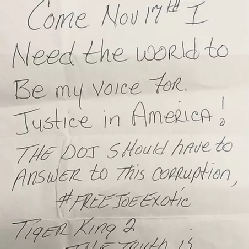 Come Nov 17th I
Need the world to
Be my voice for
Justice in America!
THE DOJ SHould have to
ANSWER to THis CORRuption,
#FREEJoeExotic
TIGER KING 2
THE TRuth is